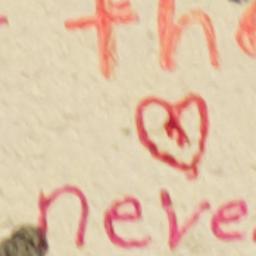 the
neve